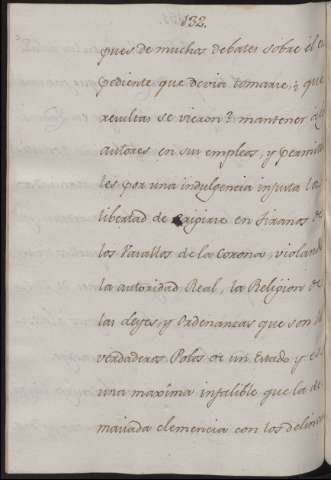 132.
pues de muchos debates sobre el ex
pediente que devia tomarse, ¿ que
resultas se vieron? mantener a los
autores en sus empleos, y permitir
les por una indulgencia injusta la
libertad de erigirse en tiranos de
los Vasallos de la Corona, violando
la autoridad Real, la Religion de
las Leyes, y Ordenanzas que son los
verdaderos Polos de un Estado y es
una maxima infalible que la de
masiada clemencia con los delin